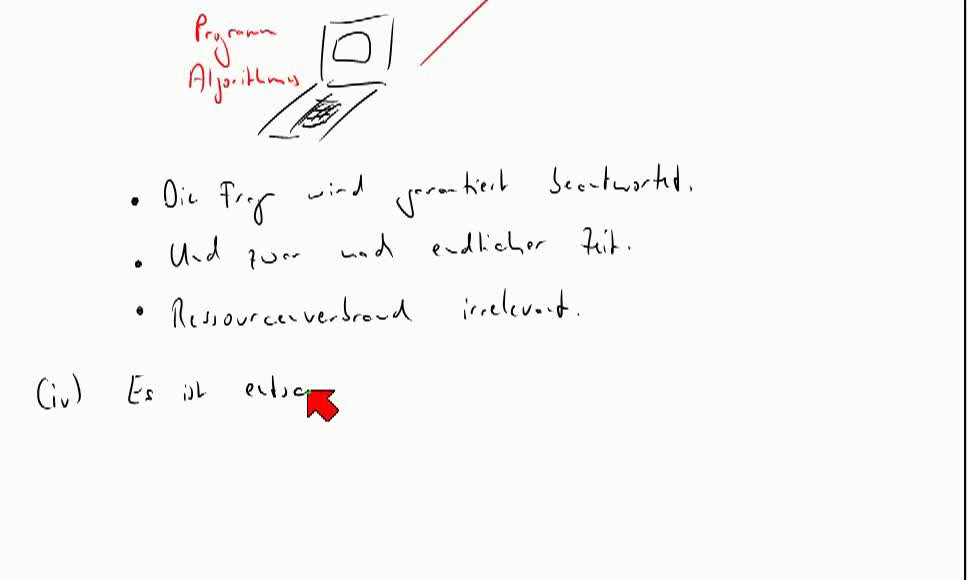 Programm
Algorithmus
• Die Frage wird garantiert beantwortet.
• Und zwar nach endlicher Zeit.
• Ressourcenverbrauch irrelevant.
(iv) Es ist entsc